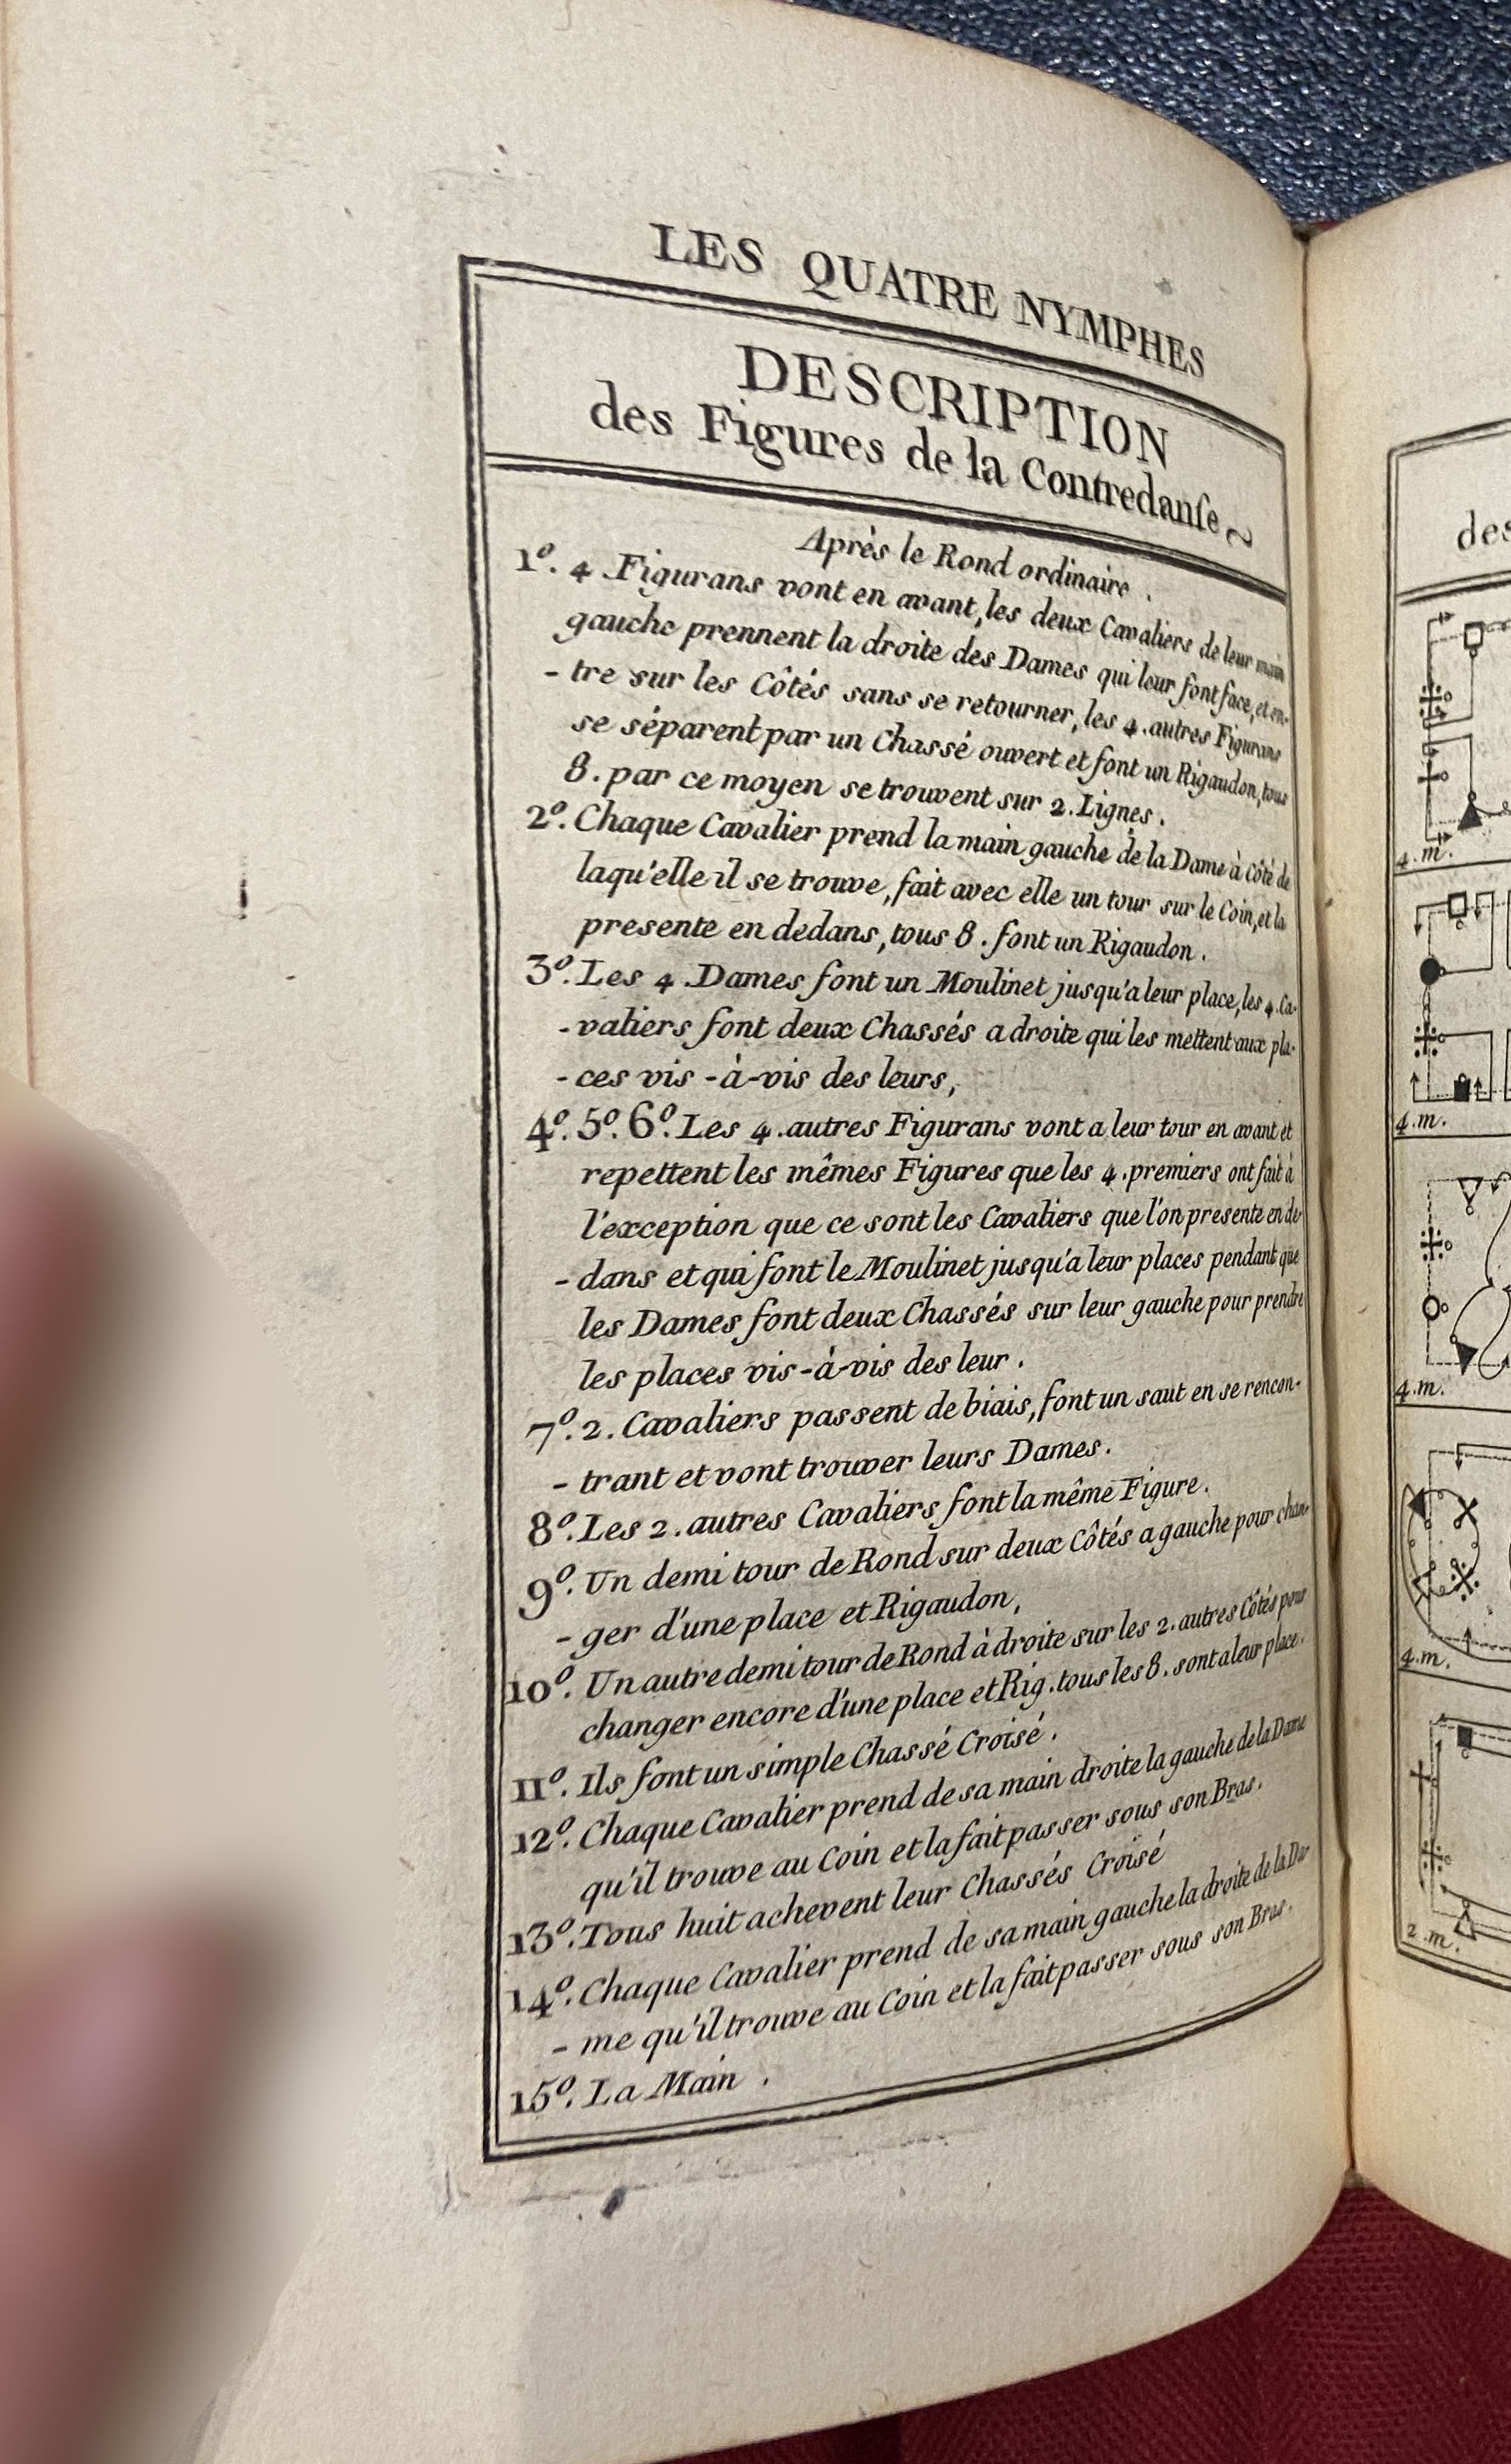 LES QUATRE NYMPHES
DESCRIPTION
des Figures de la Contredanſe ~
Après le Rond ordinaire .
1º. 4 . Figurans vont en avant, les deux Cavaliers de leur main
gauche prennent la droite des Dames qui leur font face, et en-
- tre sur les Côtés sans se retourner, les 4 . autres Figurans
se séparent par un Chassé ouvert et font un Rigaudon, tous
8 . par ce moyen se trouvent sur 2 . Lignes .
2º. Chaque Cavalier prend la main gauche de la Dame à côté de
laqu'elle il se trouve, fait avec elle un tour sur le Coin, et la
presente en dedans, tous 8 . font un Rigaudon .
3º. Les 4 . Dames font un Moulinet jusqu'a leur place, les 4 . Ca-
- valiers font deux Chassés a droite qui les mettent aux pla-
- ces vis - à - vis des leurs,
4º. 5º. 6º. Les 4 . autres Figurans vont a leur tour en avant et
repettent les mêmes Figures que les 4 . premiers ont fait à
l'exception que ce sont les Cavaliers que l'on presente en de-
- dans et qui font le Moulinet jusqu'a leur places pendant que
les Dames font deux Chassés sur leur gauche pour prendre
les places vis - à - vis des leur .
7º. 2 . Cavaliers passent de biais, font un saut en se rencon-
- trant et vont trouver leurs Dames .
8º. Les 2 . autres Cavaliers font la même Figure .
9º. Un demi tour de Rond sur deux Côtés a gauche pour chan-
- ger d'une place et Rigaudon,
10º. Un autre demi tour de Rond à droite sur les 2 . autres Côtés pour
changer encore d'une place et Rig . tous les 8 . sont a leur place .
11º. Ils font un simple Chassé Croisé .
12º. Chaque Cavalier prend de sa main droite la gauche de la Dame
qu'il trouve au Coin et la fait passer sous son Bras .
13º. Tous huit achevent leur Chassés Croisé
14º. Chaque Cavalier prend de sa main gauche la droite de la Da-
- me qu'il trouve au Coin et la fait passer sous son Bras .
15º. La Main .
des
4 . m .
4 . m .
4 . m .
4 . m .
2 . m .